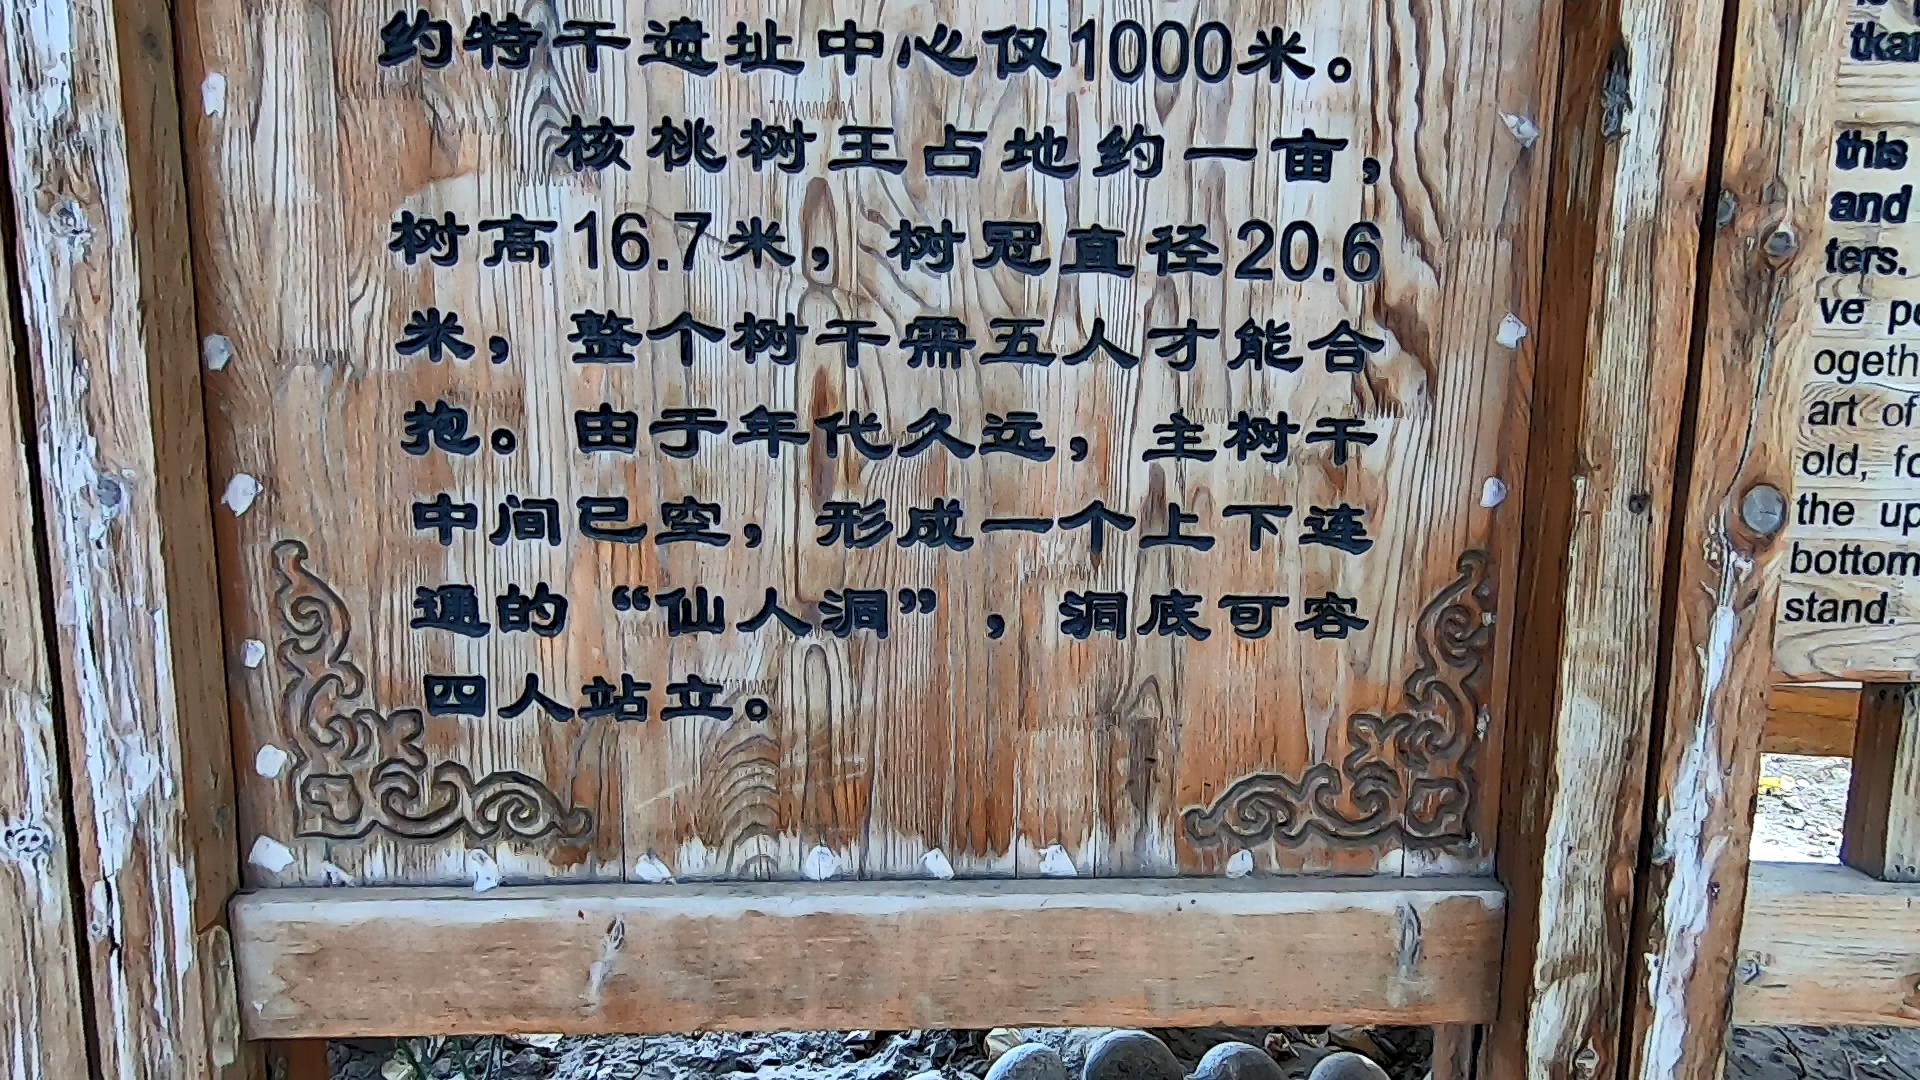 约特干遗址中心仅1000米。
核桃树王占地约一亩，
树高16.7米，树冠直径20.6
米，整个树干需五人才能合
抱。由于年代久远，主树干
中间已空，形成一个上下连
通的“仙人洞”，洞底可容
四人站立。
tkan
this
and
ters.
ve
ogeth
art of
old,
the up
bottom
stand.